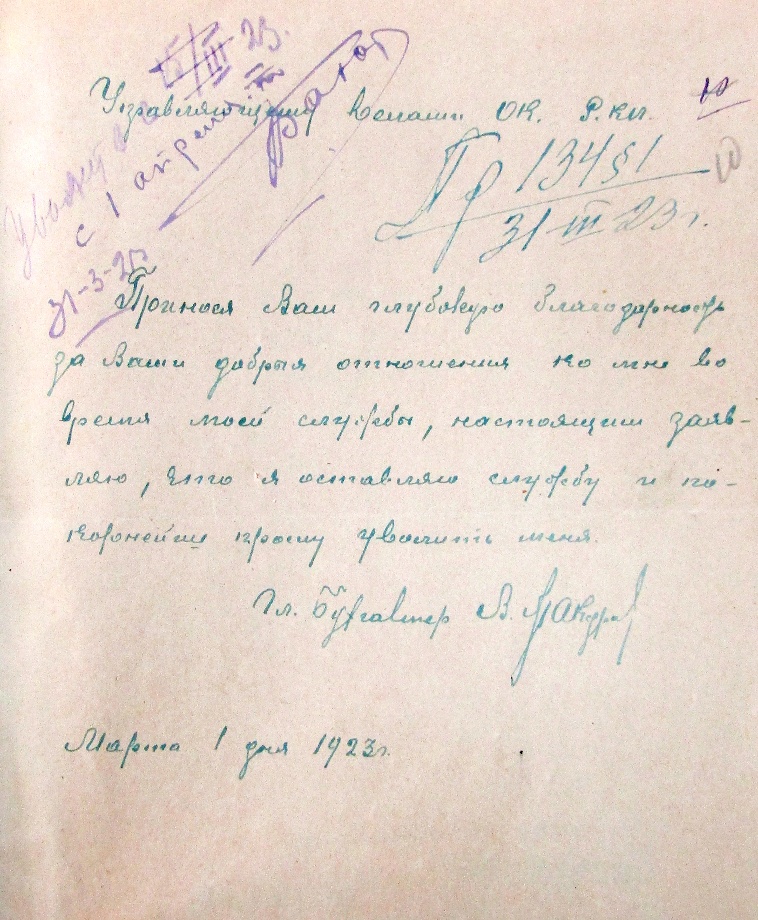 15/III 23.
Уволить
с 1 апреля
31-3-23
Управляющему делами ОК. Р.К.П.
10
Пр 134 § 1
31-III-23 г.
10
Принося Вам глубокую благодарность
за Ваши добрыя отношения ко мне во
время моей службы, настоящим заяв-
ляю, что я оставляю службу и по-
корнейше прошу уволить меня.
Гл. Бухгалтер В.
Марта 1 дня 1923 г.